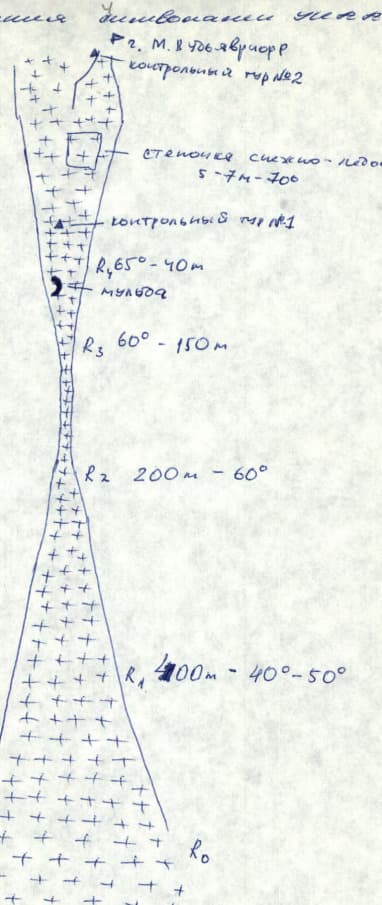 г. М.Вудъяврчорр
контрольный тур №2
стеночка снежно-ледо
5-7м-70°
контрольный тур №1
R₄ 65° - 40м
мульда
R₃ 60° - 150м
R₂ 200м - 60°
R₁ 400м - 40°-50°
R₀